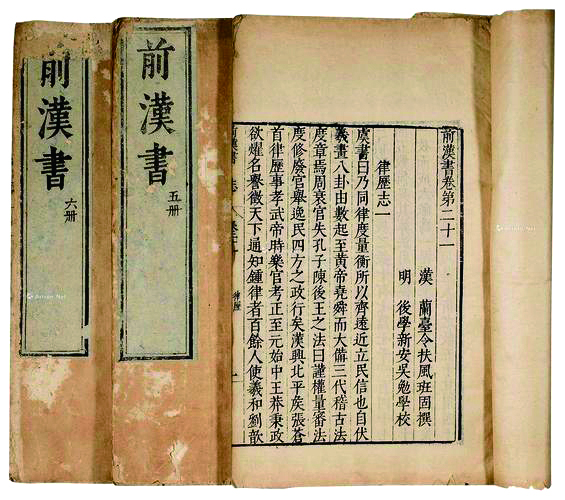 前漢書卷第二十一
漢 蘭臺令扶風班固撰
明 後學新安吳勉學校
律歷志一
虞書曰乃同律度量衡所以齊遠近立民信也自伏
羲畫八卦由數起至黃帝堯舜而大備三代稽古法
度章焉周衰官失孔子陳後王之法曰謹權量審法
度修廢官舉逸民四方之政行矣漢興北平矦張蒼
首律歷事孝武帝時樂官考正至元始中王莽秉政
欲燿名譽徵天下通知鍾律者百餘人使羲和劉歆
前漢書 志
前漢書
五册
前漢書
六册